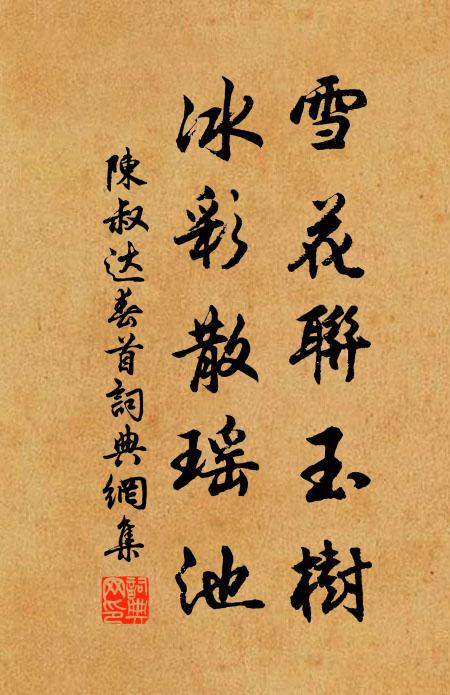 雪花聯玉樹
冰彩散瑶池
陳叔达春首詞典網集
詞典网印